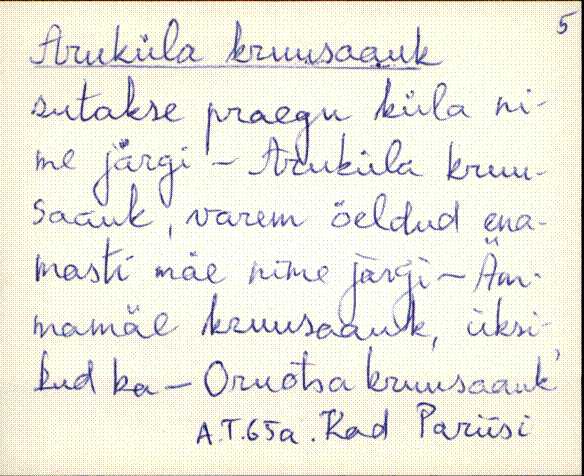 5
Aruküla kruusaauk
sutakse praegu küla ni-
me järgi – Aruküla kruu-
saauk, varem öeldud ena-
masti mäe nime järgi – Äm-
mamäe kruusaauk, üksi-
kud ka – Oruotsa kruusaauk
A.T. 65a. Rad Pariisi